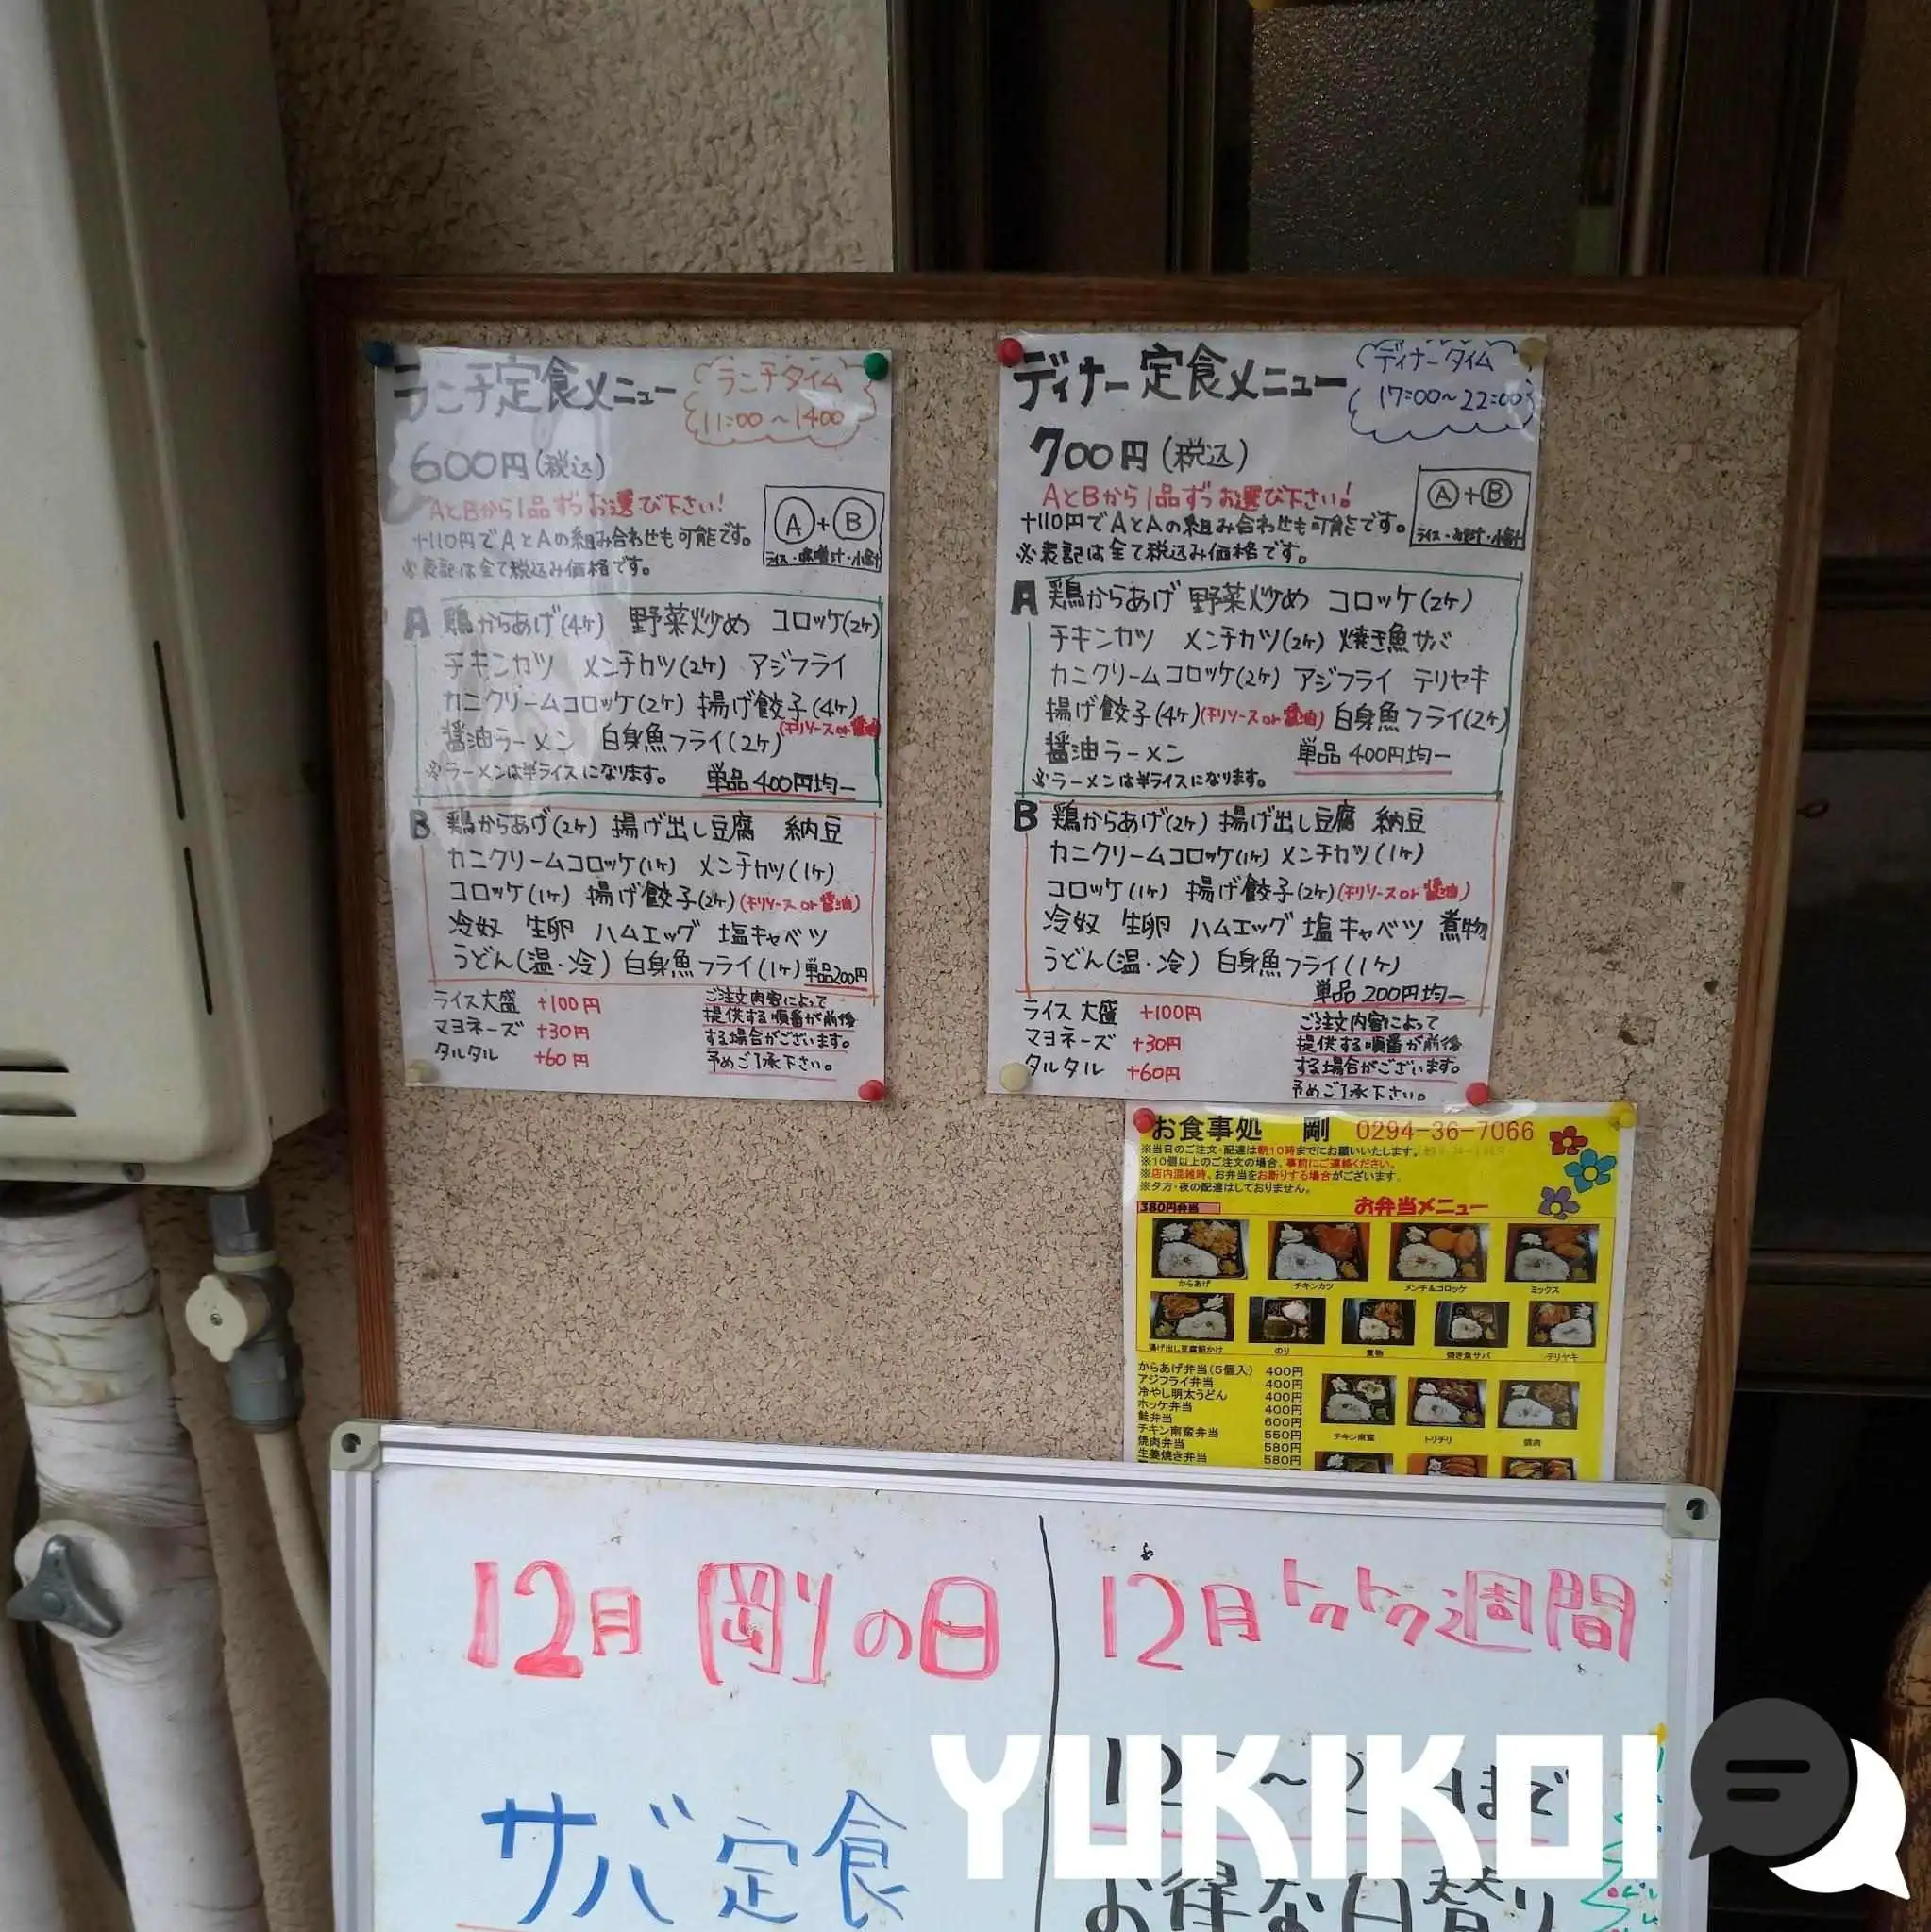 ランチ定食メニュー
ランチタイム
11:00~14:00
600円(税込)
AとBから1品ずつお選び下さい!
+110円でAとAの組み合わせも可能です。
※表記は全て税込み価格です。
A+B
ライス・味噌汁・小鉢
A 鶏からあげ(4ヶ) 野菜炒め コロッケ(2ヶ)
チキンカツ メンチカツ(2ヶ) アジフライ
カニクリームコロッケ(2ヶ) 揚げ餃子(4ヶ)
(チリソースor醤油)
醤油ラーメン 白身魚フライ(2ヶ)
※ラーメンは半ライスになります。 単品400円均一
B 鶏からあげ(2ヶ) 揚げ出し豆腐 納豆
カニクリームコロッケ(1ヶ) メンチカツ(1ヶ)
コロッケ(1ヶ) 揚げ餃子(2ヶ)(チリソースor醤油)
冷奴 生卵 ハムエッグ 塩キャベツ
うどん(温・冷) 白身魚フライ(1ヶ) 単品200円
ライス大盛 +100円
マヨネーズ +30円
タルタル +60円
ご注文内容によって
提供する順番が前後
する場合がございます。
予めご了承下さい。
ディナー定食メニュー
ディナータイム
17:00~22:00
700円(税込)
AとBから1品ずつお選び下さい!
+110円でAとAの組み合わせも可能です。
※表記は全て税込み価格です。
A+B
ライス・みそ汁・小鉢
A 鶏からあげ 野菜炒め コロッケ(2ヶ)
チキンカツ メンチカツ(2ヶ) 焼き魚サバ
カニクリームコロッケ(2ヶ) アジフライ テリヤキ
揚げ餃子(4ヶ)(チリソースor醤油) 白身魚フライ(2ヶ)
醤油ラーメン 単品400円均一
※ラーメンは半ライスになります。
B 鶏からあげ(2ヶ) 揚げ出し豆腐 納豆
カニクリームコロッケ(1ヶ) メンチカツ(1ヶ)
コロッケ(1ヶ) 揚げ餃子(2ヶ)(チリソースor醤油)
冷奴 生卵 ハムエッグ 塩キャベツ 煮物
うどん(温・冷) 白身魚フライ(1ヶ)
単品200円均一
ライス大盛 +100円
マヨネーズ +30円
タルタル +60円
ご注文内容によって
提供する順番が前後
する場合がございます。
予めご了承下さい。
お食事処 剛 0294-36-7066
※当日のご注文・配達は朝10時までにお願いいたします。
※10個以上のご注文の場合、事前にご連絡ください。
※店内混雑時、お弁当をお断りする場合がございます。
※夕方・夜の配達はしておりません。
お弁当メニュー
380円弁当
からあげ チキンカツ メンチ&コロッケ ミックス
揚げ出し豆腐餡かけ のり 煮物 焼き魚サバ テリヤキ
からあげ弁当(5個入) 400円
アジフライ弁当 400円
冷やし明太うどん 400円
ホッケ弁当 400円
鮭弁当 600円
チキン南蛮弁当 550円
焼肉弁当 580円
生姜焼き弁当 580円
チキン南蛮 トリチリ 焼肉
12月 剛の日
サバ定食
12月トクトク週間
まで
お得な日替り
YUKIKOI